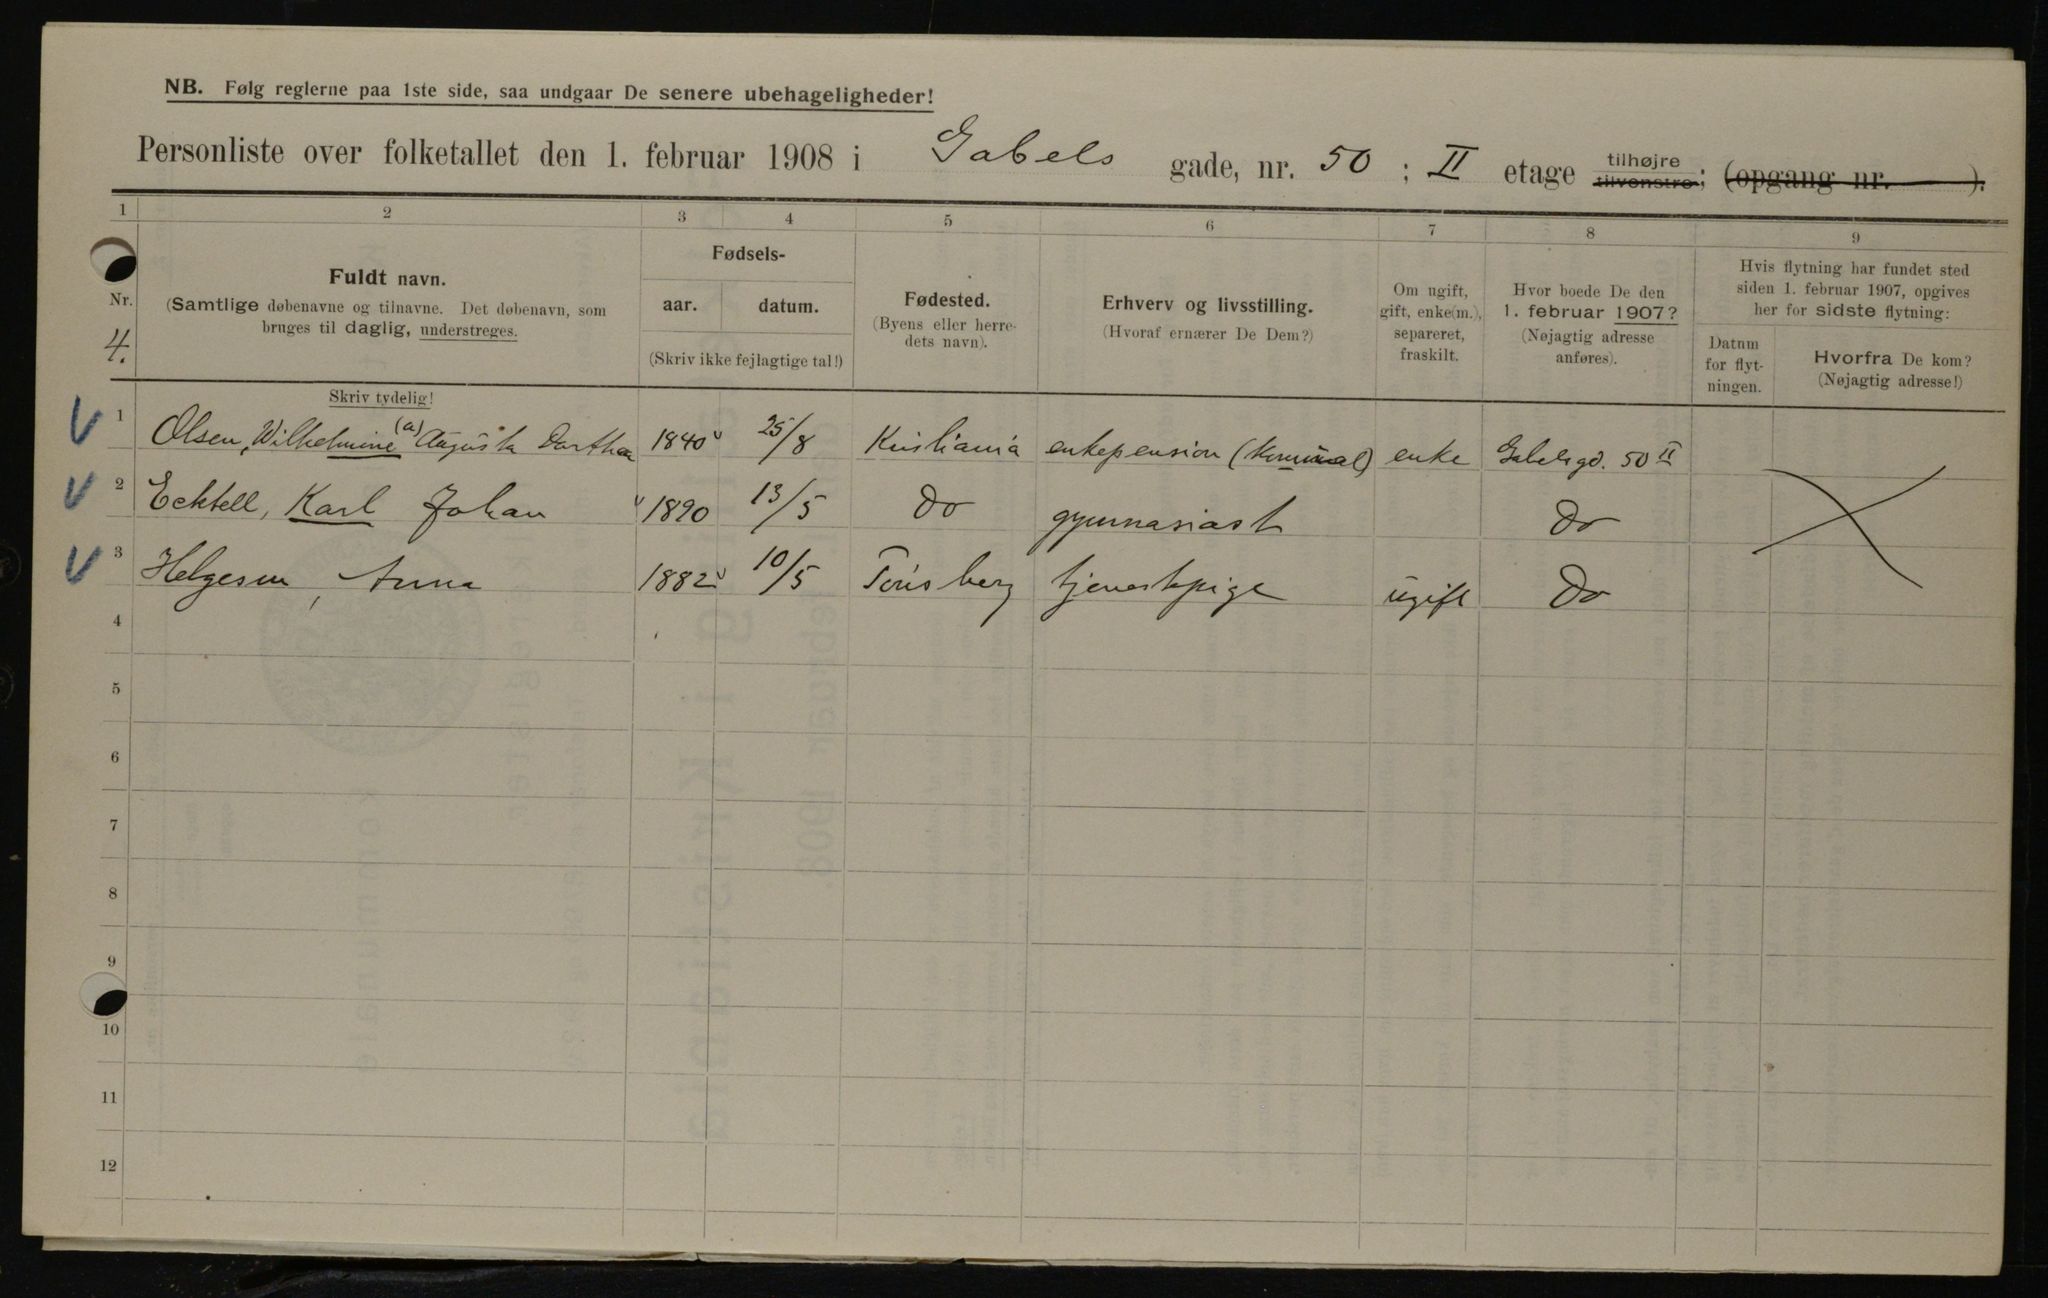 NB. Følg reglerne paa 1ste side, saa undgaar De senere ubehageligheder!
Personliste over folketallet den 1. februar 1908 i Gabels gade, nr. 50 ; II etage tilhøjre tilvenstre; (opgang nr. ).
1 2 3 4 5 6 7 8 9
Nr.
4.
Fuldt navn.
(Samtlige døbenavne og tilnavne. Det døbenavn, som
bruges til daglig, understreges.
Skriv tydelig!
Fødsels-
aar. datum.
(Skriv ikke fejlagtige tal!)
Fødested.
(Byens eller herre-
dets navn).
Erhverv og livsstilling.
(Hvoraf ernærer De Dem?)
Om ugift,
gift, enke(m.),
separeret,
fraskilt.
Hvor boede De den
1. februar 1907?
(Nøjagtig adresse
anføres).
Hvis flytning har fundet sted
siden 1. februar 1907, opgives
her for sidste flytning:
Datum
for flyt-
ningen.
Hvorfra De kom?
(Nøjagtig adresse!)
1 Olsen, Wilhelmine (a) Augusta Dorthea 1840 25/8 Kristiania enkepension (Komunal) enke Gabelsgd. 50 II
2 Ecktell, Karl Johan 1890 13/5 Do gymnasiast Do
3 Helgesen, Anna 1882 10/5 Tønsberg tjenestepige ugift Do
4
5
6
7
8
9
10
11
12